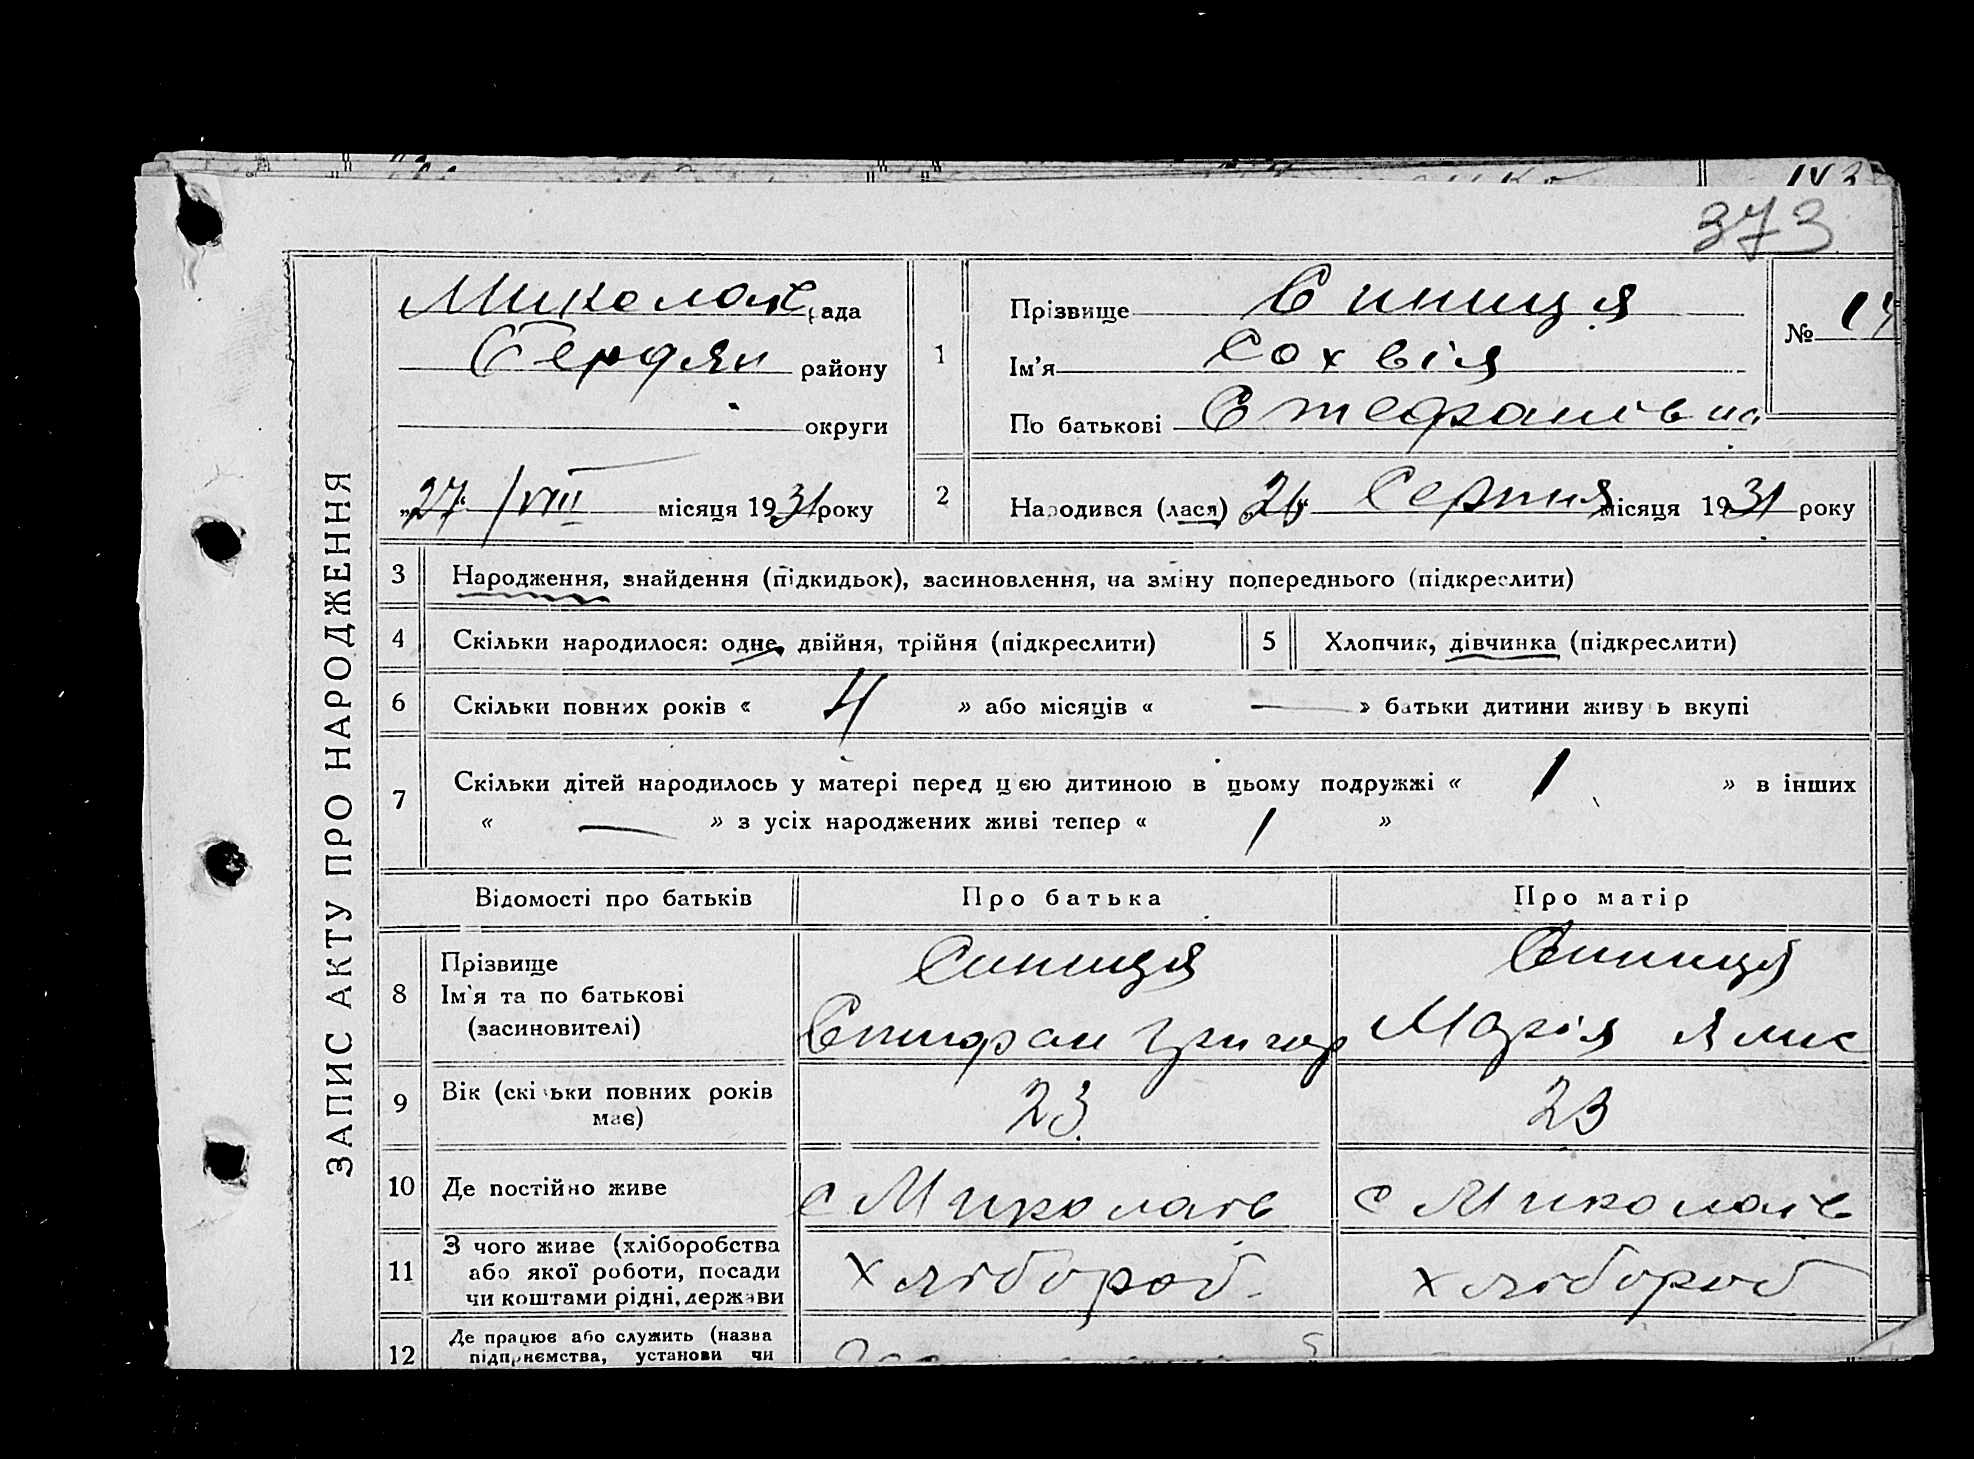 373
ЗАПИС АКТУ ПРО НАРОДЖЕННЯ
Миколаїв рада
району
округи
„27“ /VIII місяця 1931 року
1
Прізвище Синиця
Ім’я Сохвія
По батькові Стефанівна
№ 14
2
Народився (лася) „26“ Серпня місяця 1931 року
3 Народження, знайдення (підкидьок), засиновлення, на зміну попереднього (підкреслити)
4 Скільки народилося: одне, двійня, трійня (підкреслити)
5 Хлопчик, дівчинка (підкреслити)
6 Скільки повних років « 4 » або місяців « — » батьки дитини живуть вкупі
7 Скільки дітей народилось у матері перед цією дитиною в цьому подружжі « 1 » в інших
« — » з усіх народжених живі тепер « 1 »
Відомості про батьків Про батька Про матір
8 Прізвище Синиця Синиця
Ім’я та по батькові
(засиновителі) Григор Марія
9 Вік (скільки повних років
має) 23 23
10 Де постійно живе с Миколаїв с Миколаїв
11 З чого живе (хліборобства
або якої роботи, посади
чи коштами рідні, держави
Хлібороб Хлібороб
12 Де працює або служить (назва
підприємства, установи чи